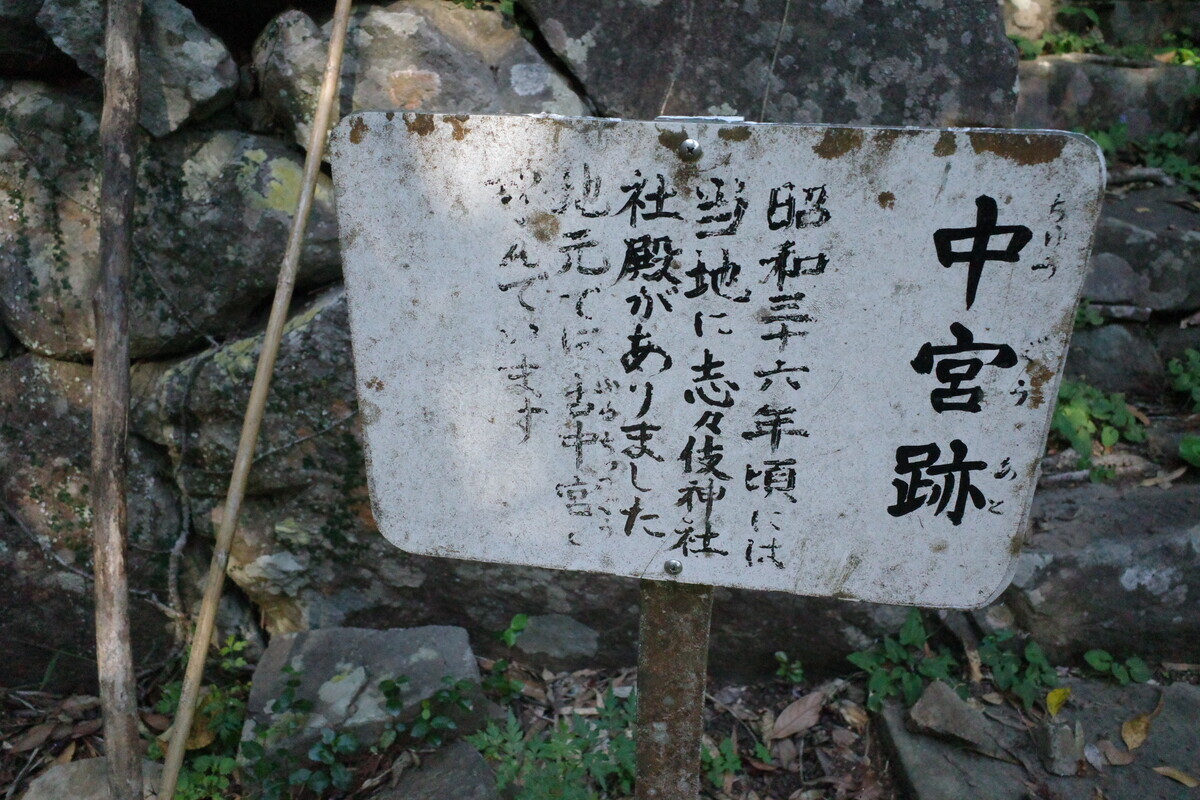 ちゆう う あと
中宮跡
昭和三十六年頃には
当地に志々伎神社
社殿がありました
地元では古中宮と
んでいます